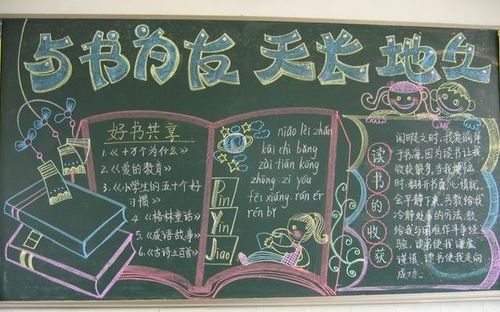 与书为友 天长地久
好书共享
1.《十万个为什么》
2.《爱的教育》
3.《小学生的五十个好
习惯》
4.《格林童话》
5.《成语故事》
6.《古诗三百首》
Pin
Yin
Jiao
niǎo lèi zhǎn
kāi chì bǎng
zài tiān kōng
zhōng zì yóu
fēi xiáng. rán ér
rén
读书的收获
闲暇之时,我畅游
于书海,因为读书让我
收获很多,当我烦恼
时,翻开书籍,心情就
会平静下来,书教给我
冷静处事的方法,教
给我与困难作斗争经
验,读书使我谦虚
谨慎,读书使我走向
成功。